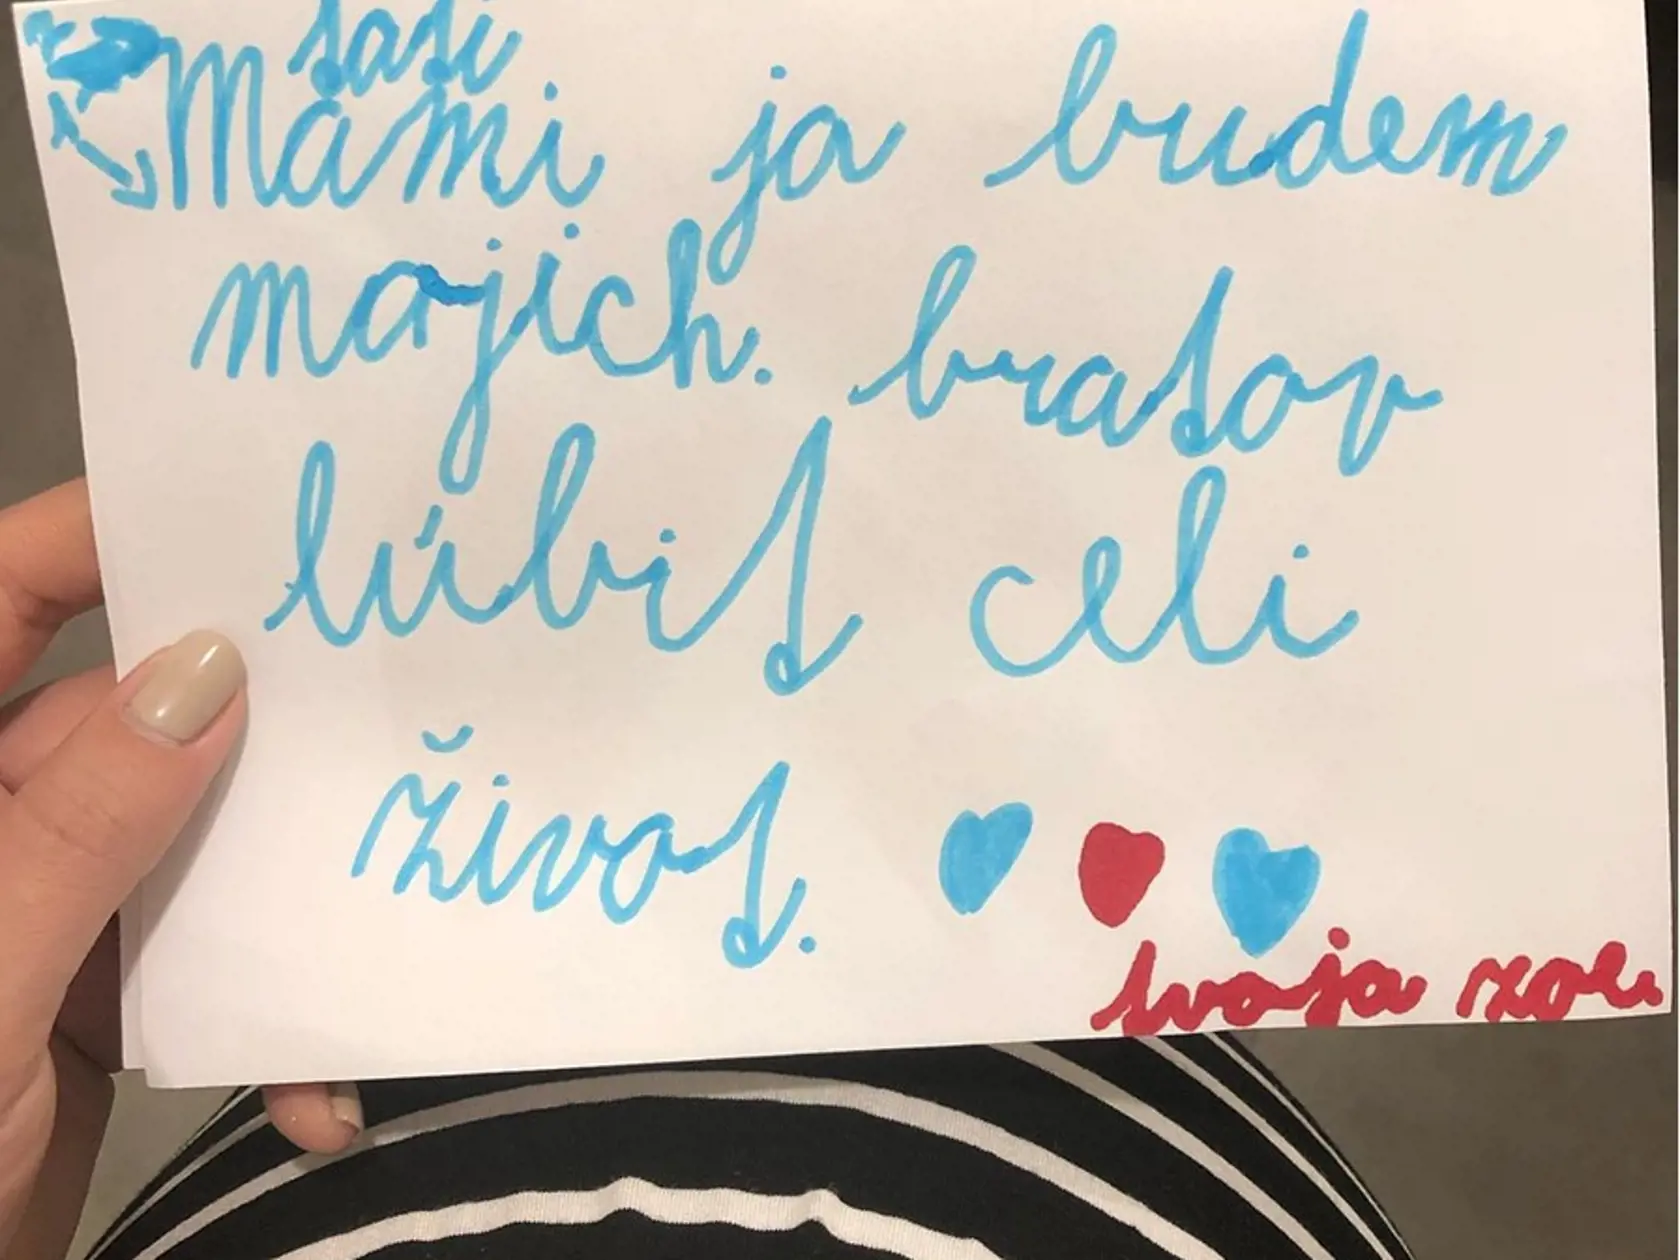 tati
Mami ja budem
majich. bratov
lúbit celi
život.
tvoja zoe.